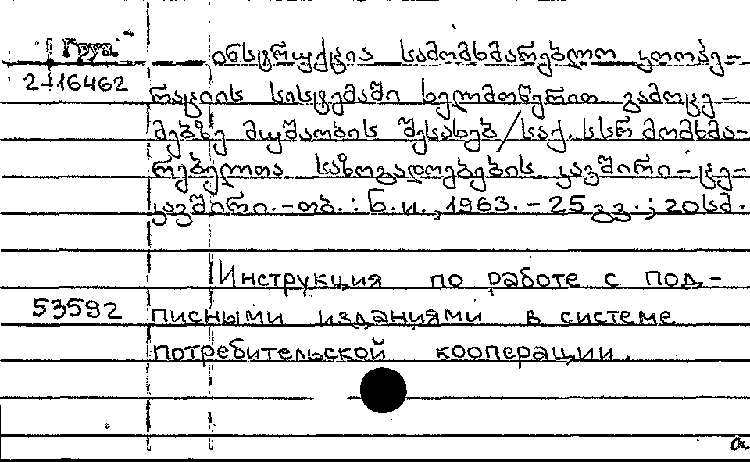 Груз.
2-16462
ინსტრუქცია სამომხმარებლო კოოპე-
რაციის სისტემაში ხელმოწერით გამოცე-
მებზე მუშაობის შესახებ/საქ. სსრ მომხმა-
რებელთა საზოგადოებების კავშირი-ცე-
კავშირი.-თბ.: Б.и., 1963.-25 გვ.; 20სმ.
Инструкция по работе с под-
53592
писными изданиями в системе
потребительской кооперации.
а